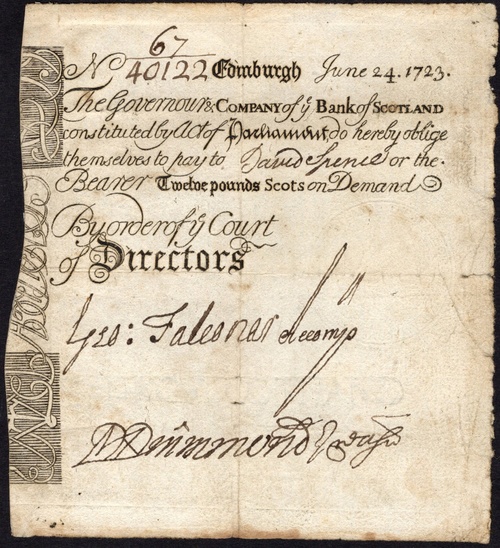 67
No 40122 Edinburgh June 24. 1723.
The Governour & COMPANY of ye Bank of SCOTLAND
constituted by Act of Parliament do hereby oblige
themselves to pay to David Spence or the
Bearer Twelve pounds Scots on Demand
By order of ye Court
of Directors
Geo: Falconar Accomp
D Drummond Treasr